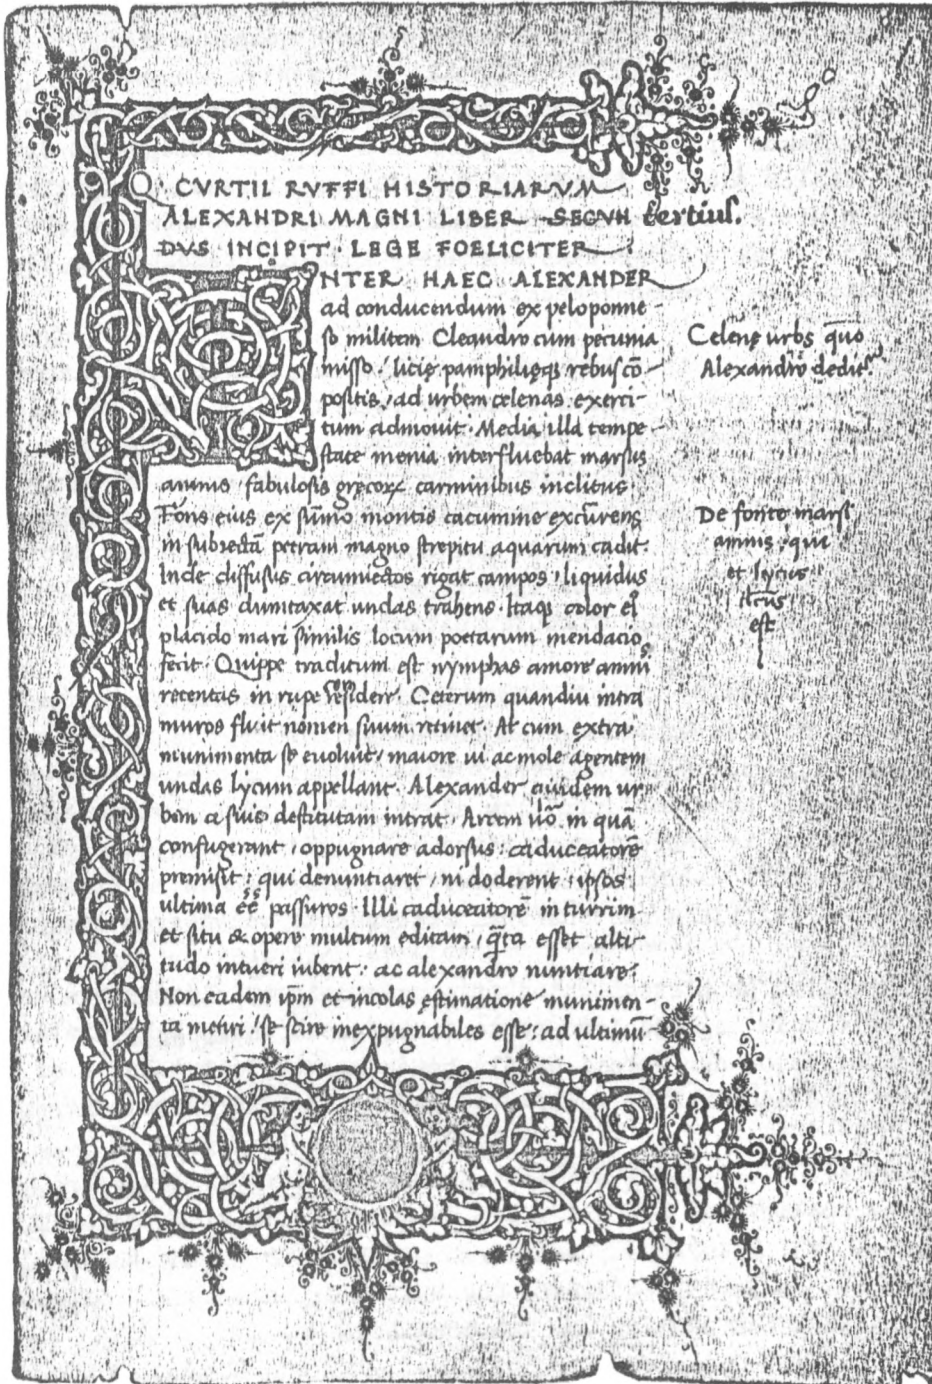 Q. CVRTII RVFFI HISTORIARVM
ALEXANDRI MAGNI LIBER SECVN tertius.
DVS INCIPIT. LEGE FOELICITER
INTER HAEC ALEXANDER
ad conducendum ex peloponne-
so militem Cleandro cum pecunia
misso. licię pamphilięqꝫ rebus cō-
positis, ad urbem celenas exerci-
tum admouit. Media illa tempe-
state menia interfluebat marsus
amnis fabulosis grecoꝝ carminibus inclitus.
Fons eius ex sūmo montis cacumine excurrens
in subiectā petram magno strepitu aquarum cadit.
Inde diffusus circumiectos rigat campos, liquidus
et suas dumtaxat undas trahens. Itaqꝫ color eiꝰ
placido mari similis locum poetarum mendacio
fecit. Quippe traditum est nymphas amore amnis
retentas in rupe residere. Ceterum quandiu intra
muros fluit nomen suum retinet. At cum extra
munimenta se euoluit, maiore ui ac mole agentem
undas lycum appellant. Alexander quidem ur
bem a suis destitutam intrat. Arcem uō in quā
confugerant, oppugnare adorsus: caduceatorē
premisit: qui denuntiaret, ni dederent, ipsos
ultima eē passuros. Illi caduceatorē in turrim
et situ & opere multum editam, q̄ta esset alti-
tudo intueri iubent: ac alexandro nuntiare.
Non eadem ip̄m et incolas ęstimatione munimen-
ta metiri, se scire inexpugnabiles esse: ad ultimū
Celenę urbs quō
Alexandro dedit.
De fonte marsi
amnis, qui
et lycus
dictus
est